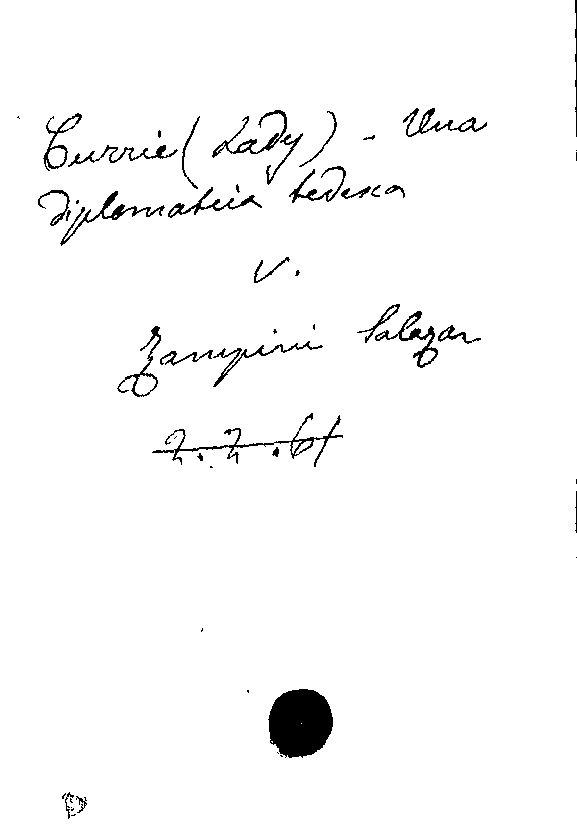 Currie (Lady) - Una
diplomatica tedesca
V.
Zampini Salazar
2.2.61